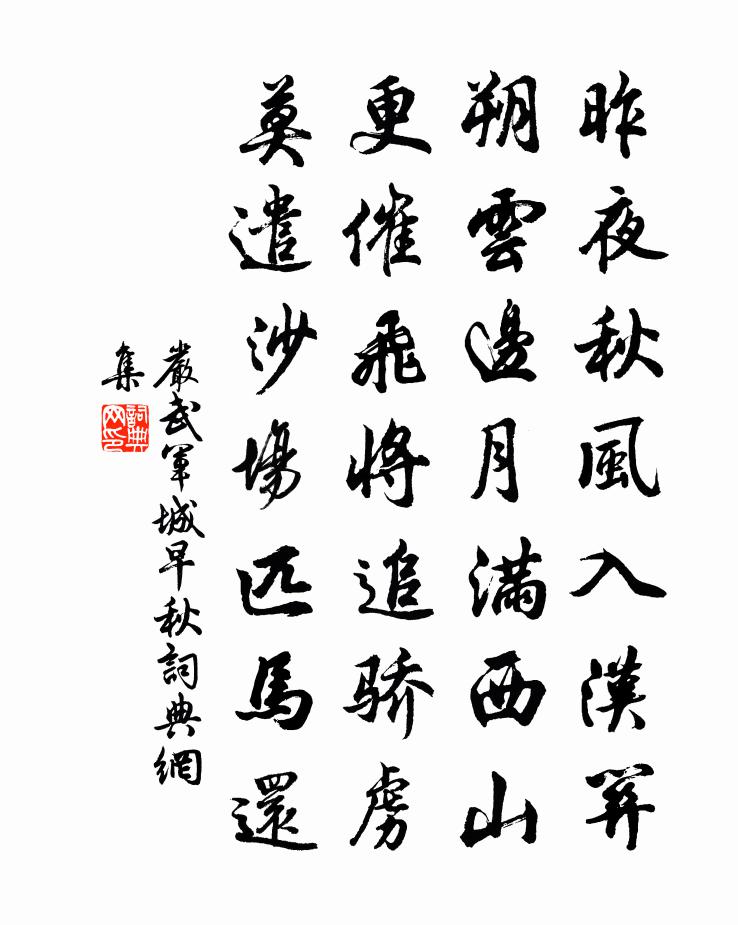 昨夜秋風入漢関
朔雲邊月滿西山
更催飛將追骄虜
莫遣沙場匹馬還
嚴武軍城早秋詞典網
集
詞典
网印